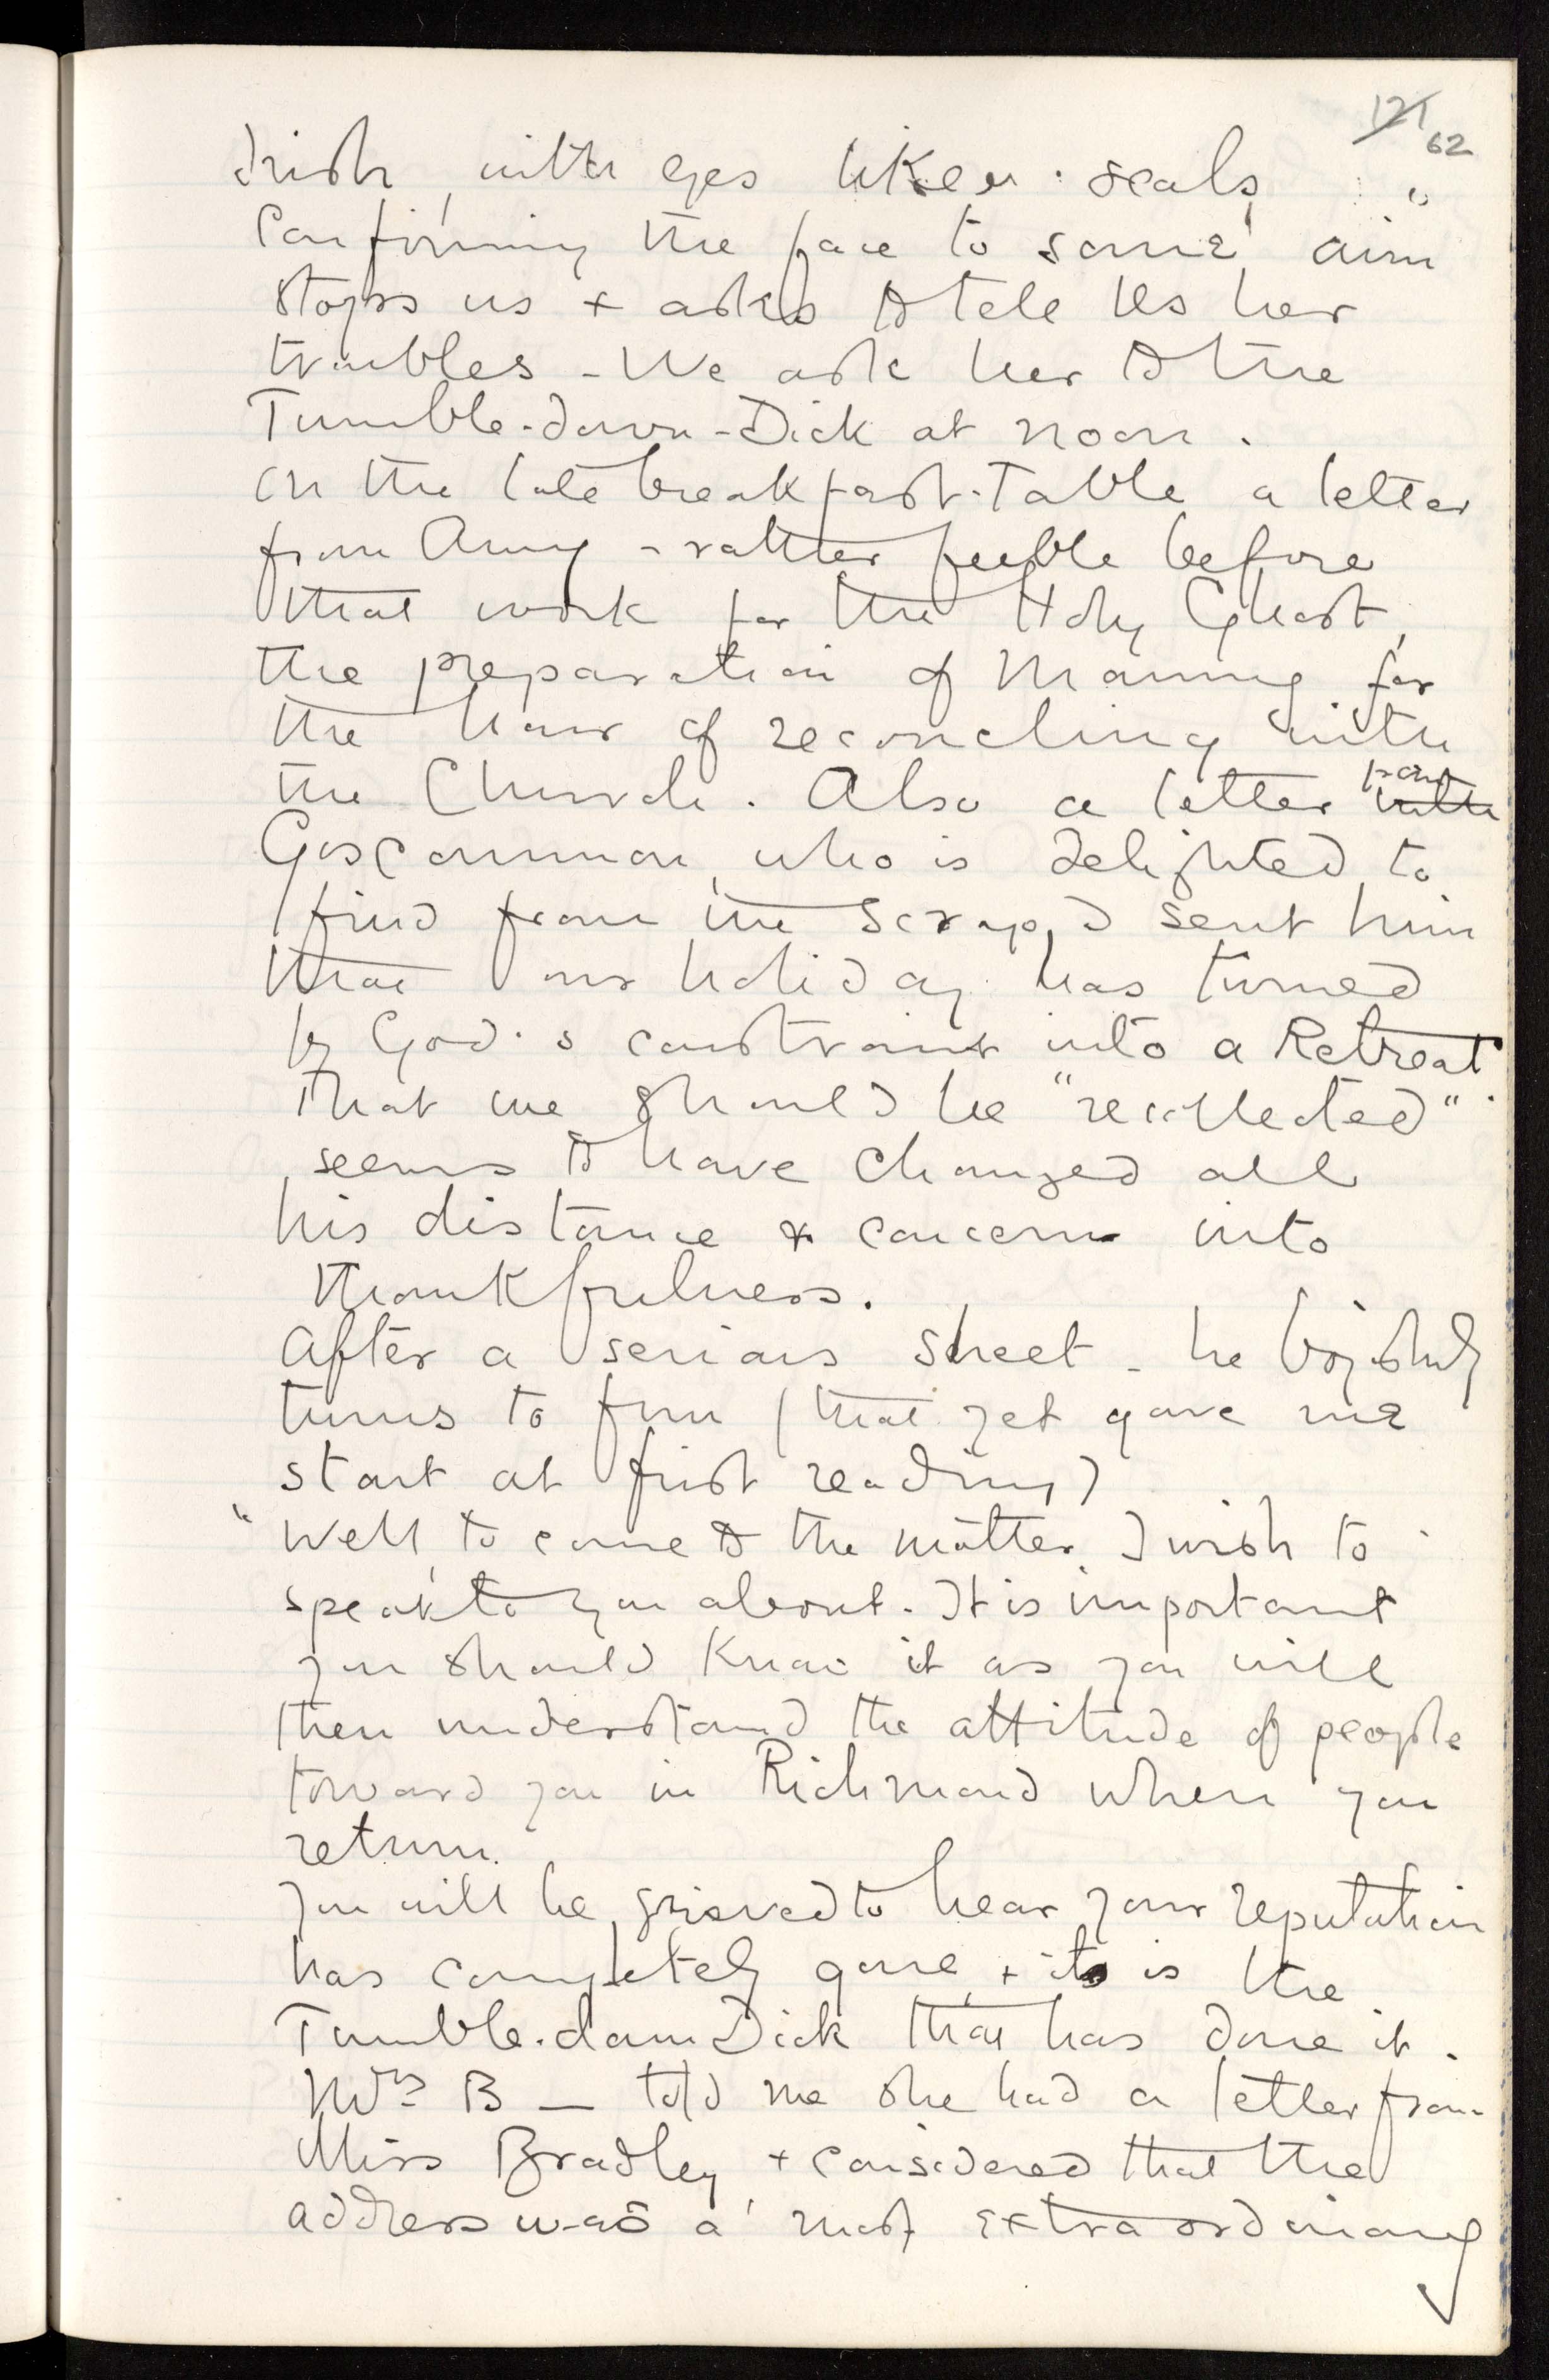 121 62
Irish, with eyes like seals,
confirming the face to some aim
stops us + asks to tell us her
troubles - We ask her to the
Tumble-down-Dick at noon.
On the late breakfast-table a letter
from Amy - rather feeble before
that work for the Holy Ghost,
the preparation of Manning for
the hour of reconcling with
the Church. Also a letter with from
Goscannon, who is delighted to
find from the scrap I sent him
that our holiday has turned
by God's constraint into a Retreat
That we should be "recollected"
seems to have changed all
his distance & concern into
thankfulness.
After a serious sheet - he boyishly
turns to fun (that yet gave me
start at first reading)
"Well, to come to the matter I wish to
speak to you about. It is important
you should know it as you will
then understand the attitude of people
toward you in Richmond when you
return.
You will be grieved to hear your reputation
has completely gone, + it is the
Tumble-down Dick that has done it.
Mrs B — told me she had a letter from
Miss Bradley, + considered that the
address was a most extraordinary